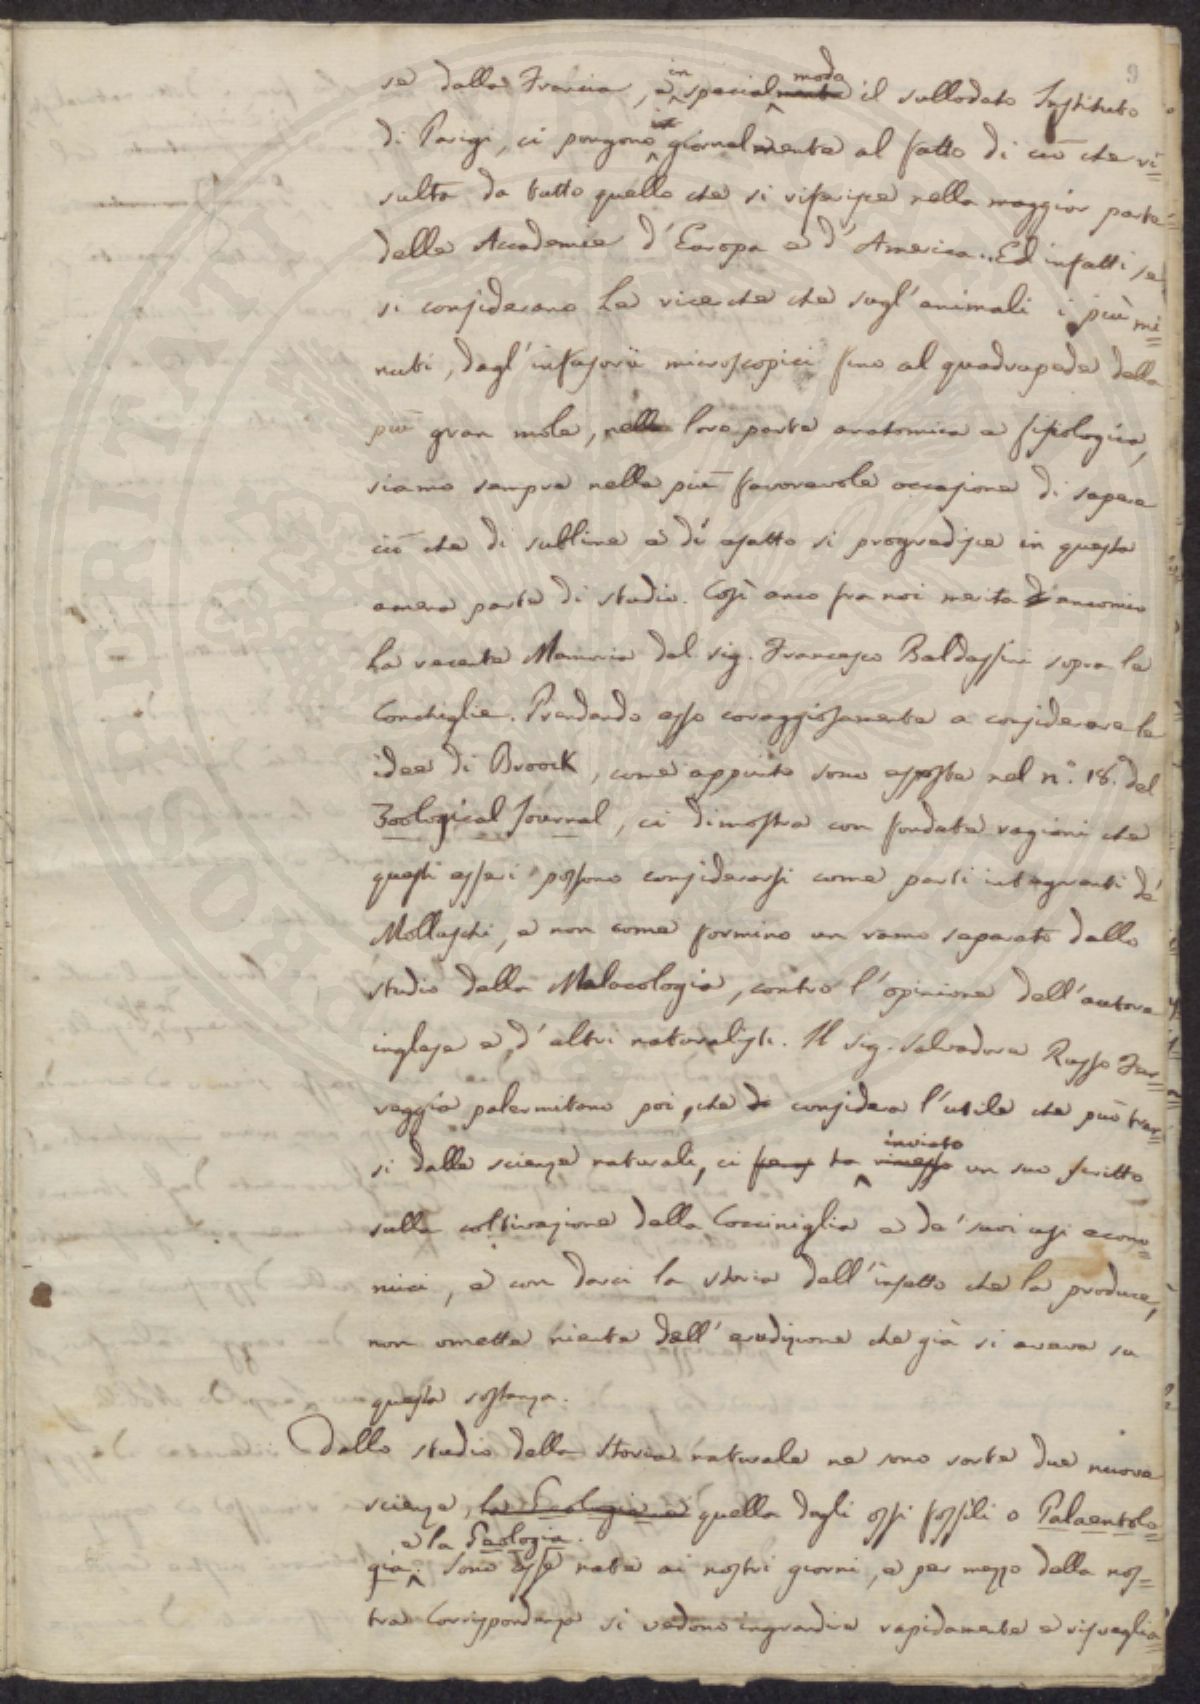 9
se dalla Francia, e in special modo il sullodato Instituto
di Parigi, ci pongono giornalmente al fatto di ciò che ri=
sulta da tutto quello che si riferisce nella maggior parte
delle Accademie d'Europa e d'America. Ed infatti se
si considerano le ricerche che sugl'animali i più mi=
nuti, dagl'infusorii microscopici fino al quadrupede della
più gran mole, nella loro parte anatomica e fisiologica,
siamo sempre nella più favorevole occasione di sapere
ciò che di sublime e di esatto si progredisce in questa
amena parte di studio. Così anco fra noi merita encomio
la recente Memoria del sig. Francesco Baldassini sopra le
Conchiglie. Prendendo esso coraggiosamente a considerare le
idee di Broock, come appunto sono esposte nel n.° 18. del
Zoological Journal, ci dimostra con fondate ragioni che
questi esseri possono considerarsi come parti integranti de'
Molluschi, e non come formino un ramo separato dallo
studio della Malacologia, contro l'opinione dell'autore
inglese e d'altri naturalisti. Il sig. Salvadore Russo Fer=
ruggia palermitano poi, che considera l'utile che può trar=
si dalle scienze naturali, ci ha inviato un suo scritto
sulla coltivazione della Cocciniglia e de' suoi usi econo=
mici, e con darci la storia dell'insetto che la produce,
non omette niente dell'erudizione che già si aveva su
questa sostanza.
Dallo studio della Storia naturale ne sono sorte due nuove
scienze, la Geologia e quella degli ossi fossili o Palaentolo=
gia e la Geologia. Sono esse nate ai nostri giorni, e per mezzo della nos=
tra Corrispondenza si vedono ingrandire rapidamente e risveglia=